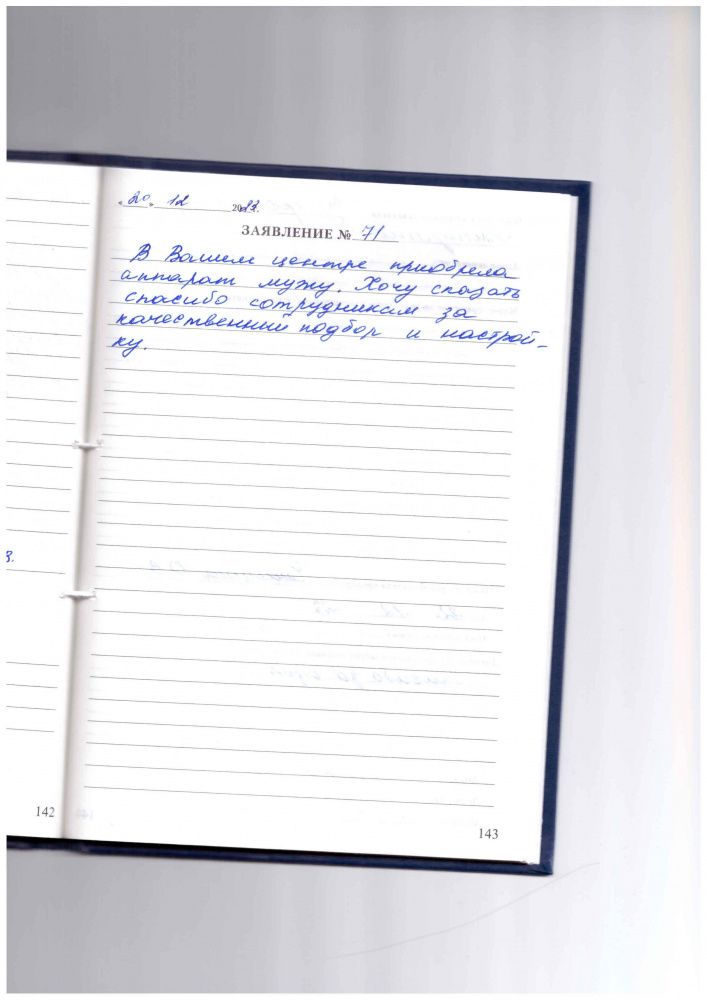 « 20 » 12 2023.
ЗАЯВЛЕНИЕ № 71
В Вашем центре приобрела
аппарат мужу. Хочу сказать
спасибо сотрудникам за
качественный подбор и настрой-
ку.
3.
142
143